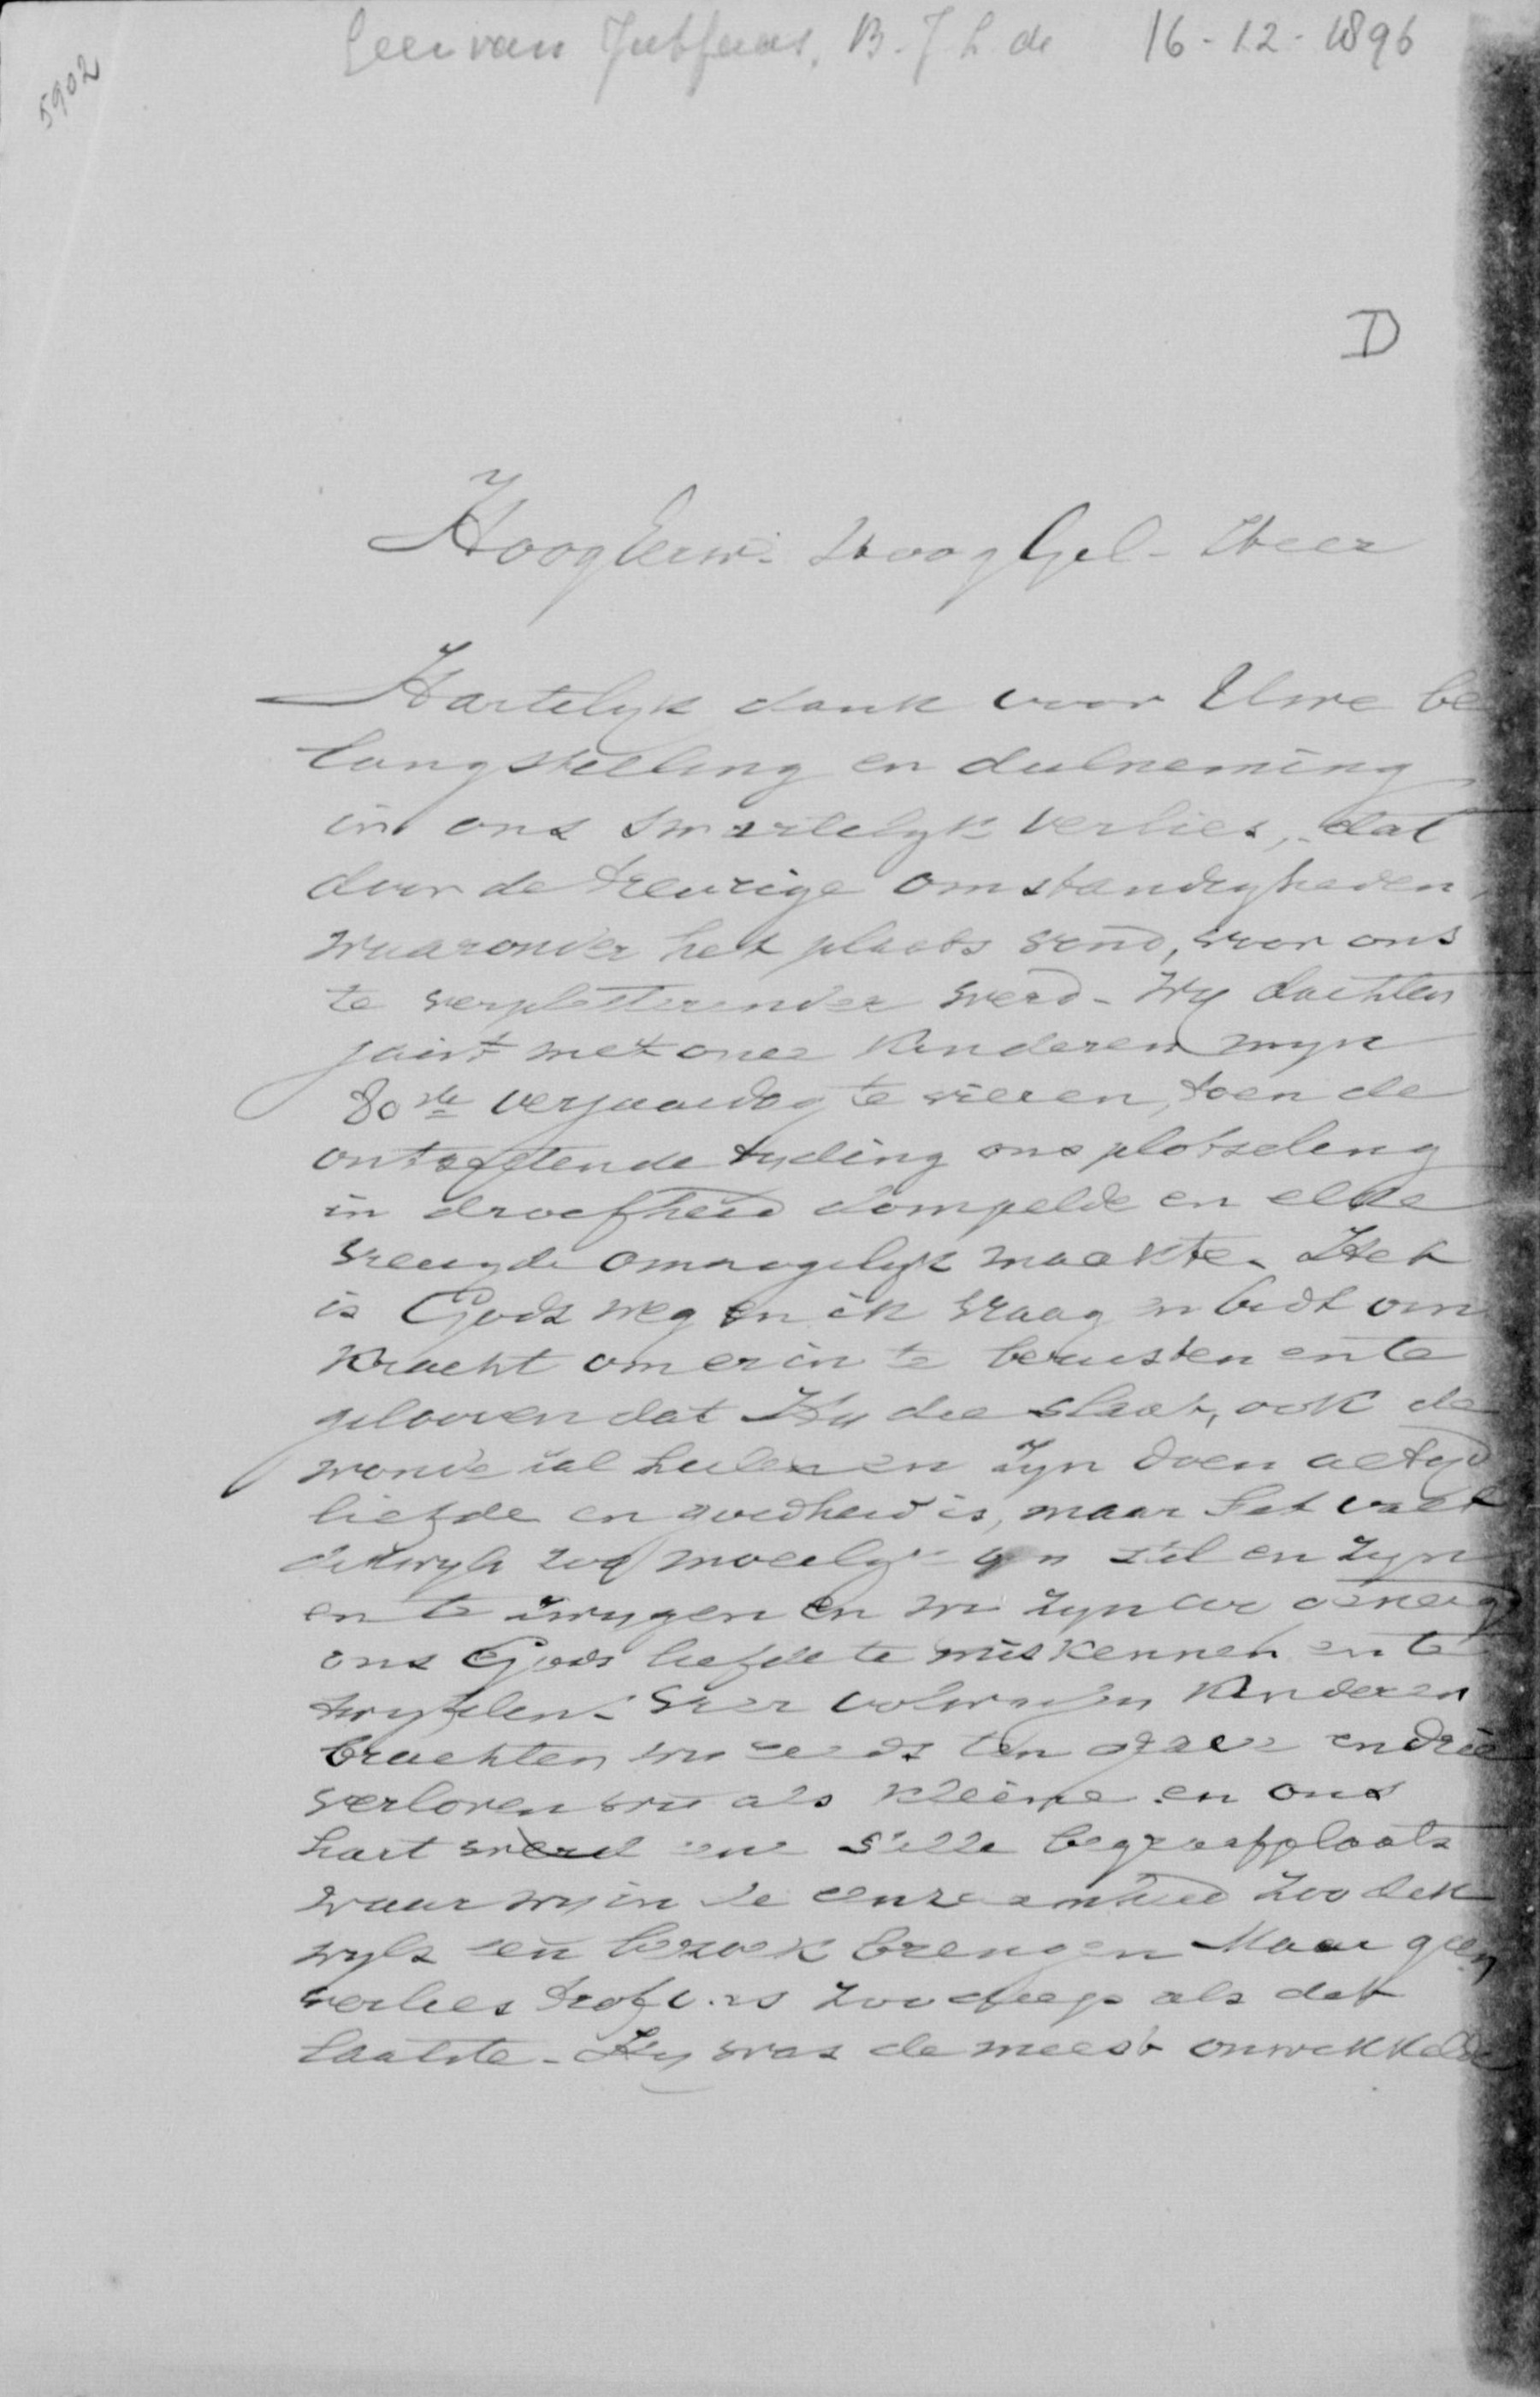 Geer van Jutfaas, B. J. L. de 16-12-1896
5902
D
HoogEerw. HoogGel. Heer
Hartelyk dank voor Uwe be
langstelling en deelneming
in ons smartelyk verlies, dat
door de treurige omstandigheden,
waaronder het plaats vond, voor ons
te verpletterender werd - Wy dachten
juist met onze kinderen myn
80ste verjaardag te vieren, toen de
ontzettende tyding ons plotseling
in droefheid dompelde en elke
vreugde onmogelyk maakte. Het
is Gods weg en ik vraag en bidt om
kracht om er in te berusten en te
gelooven dat Hy die slaat, ook de
wonde zal heelen en Zyn doen altyd
liefde en goedheid is, maar het valt
dikwyls zoo moeelyk om stil en zyn
en te zwygen en wy zyn
ons Gods liefde te miskennen en te
twyfelen. Vier volwassen kinderen
brachten wy reeds ten grave en drie
verloren wy als kleine en ons
hart werd eene stille begraafplaats
waar wy in de eenzaamheid zoo dik
wyls een bezoek brengen Maar geen
verlies trof ons zoo diep als dat
laatste. Hy was de meest onwikkelde